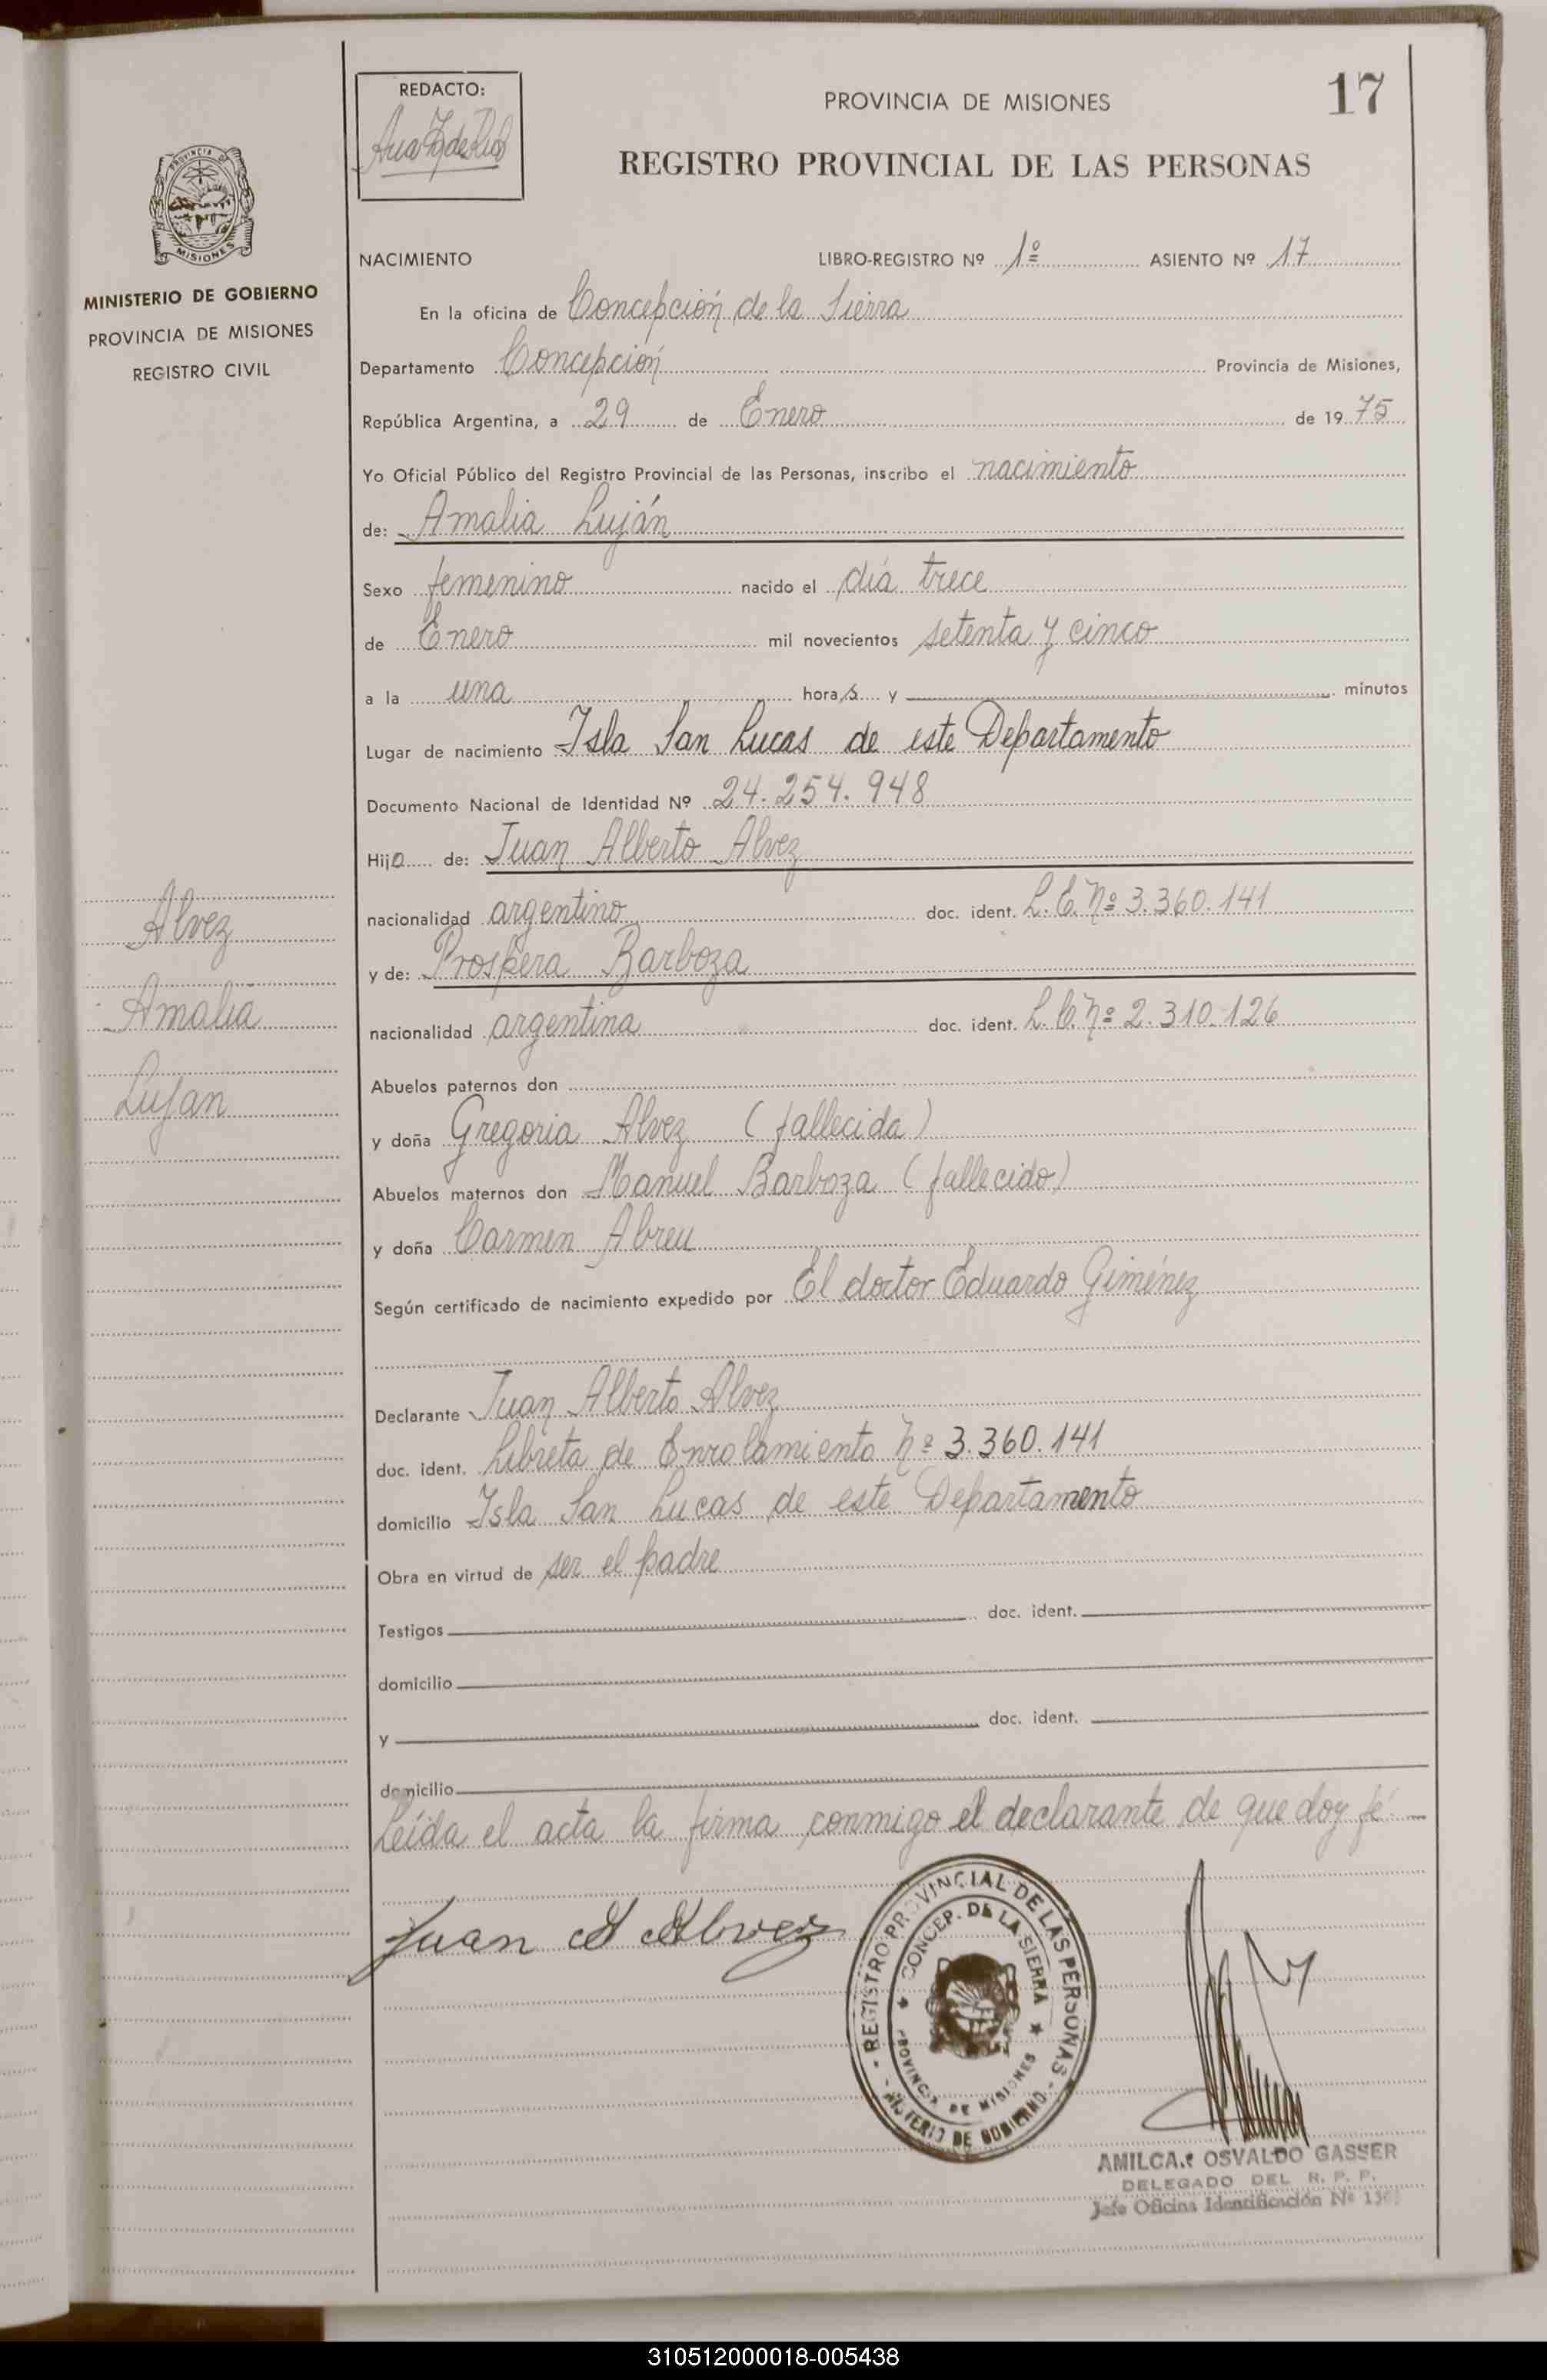 17
REDACTO:
PROVINCIA DE MISIONES
REGISTRO PROVINCIAL DE LAS PERSONAS
PROVINCIA DE
MISIONES
MINISTERIO DE GOBIERNO
PROVINCIA DE MISIONES
REGISTRO CIVIL
NACIMIENTO LIBRO-REGISTRO Nº 1º ASIENTO Nº 17
En la oficina de Concepción de la Sierra
Departamento Concepción Provincia de Misiones,
República Argentina, a 29 de Enero de 1975
Yo Oficial Público del Registro Provincial de las Personas, inscribo el nacimiento
de: Amalia Luján
Sexo femenino nacido el día trece
de Enero mil novecientos setenta y cinco
a la una horas y minutos
Lugar de nacimiento Isla San Lucas de este Departamento
Documento Nacional de Identidad Nº 24.254.948
Hija de: Juan Alberto Alvez
nacionalidad argentino doc. ident. L.E. Nº 3.360.141
y de: Prospera Barboza
nacionalidad argentina doc. ident. L.C. Nº 2.310.126
Alvez
Amalia
Lujan
Abuelos paternos don
y doña Gregoria Alvez (fallecida)
Abuelos maternos don Manuel Barboza (fallecido)
y doña Carmen Abreu
Según certificado de nacimiento expedido por El doctor Eduardo Giménez
Declarante Juan Alberto Alvez
doc. ident. Libreta de Enrolamiento Nº 3.360.141
domicilio Isla San Lucas de este Departamento
Obra en virtud de ser el padre
Testigos doc. ident.
domicilio
y doc. ident.
domicilio
Leída el acta la firma conmigo el declarante de que doy fé
Juan A Alvez
- REGISTRO PROVINCIAL DE LAS PERSONAS -
CONCEP. DE LA SIERRA
PROVINCIA DE MISIONES
MISTERIO DE GOBIERNO
AMILCAR OSVALDO GASSER
DELEGADO DEL R. P. P.
Jefe Oficina Identificación Nº
310512000018-005438